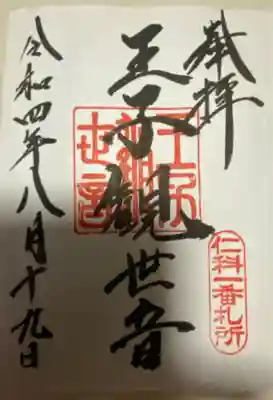 奉拝
仁科一番札所
王子観世音
令和四年八月十九日